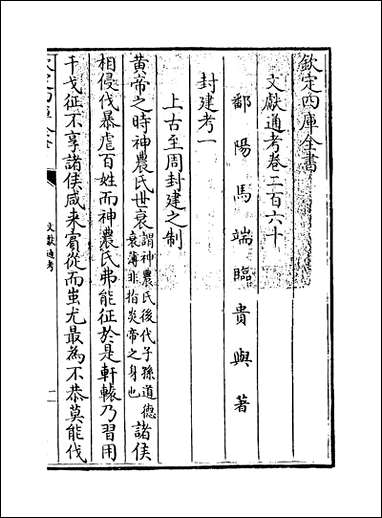 欽定四庫全書
文獻通考卷二百六十
鄱陽馬端臨貴與著
封建考一
上古至周封建之制
黄帝之時神農氏世衰謂神農氏後代子孫道德衰薄非指炎帝之身也諸侯
相侵伐暴虐百姓而神農氏弗能征於是軒轅乃習用
干戈征不享諸侯咸來賓從而蚩尤最為不恭莫能伐
文獻通考